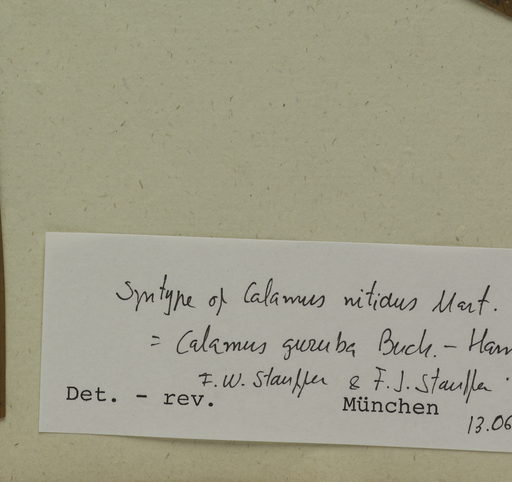 Syntype of Calamus nitidus Mart.
= Calamus guruba Buch. - Ham
F.W. Stauffer & F.J. Stauffer
Det. - rev. München
13.06